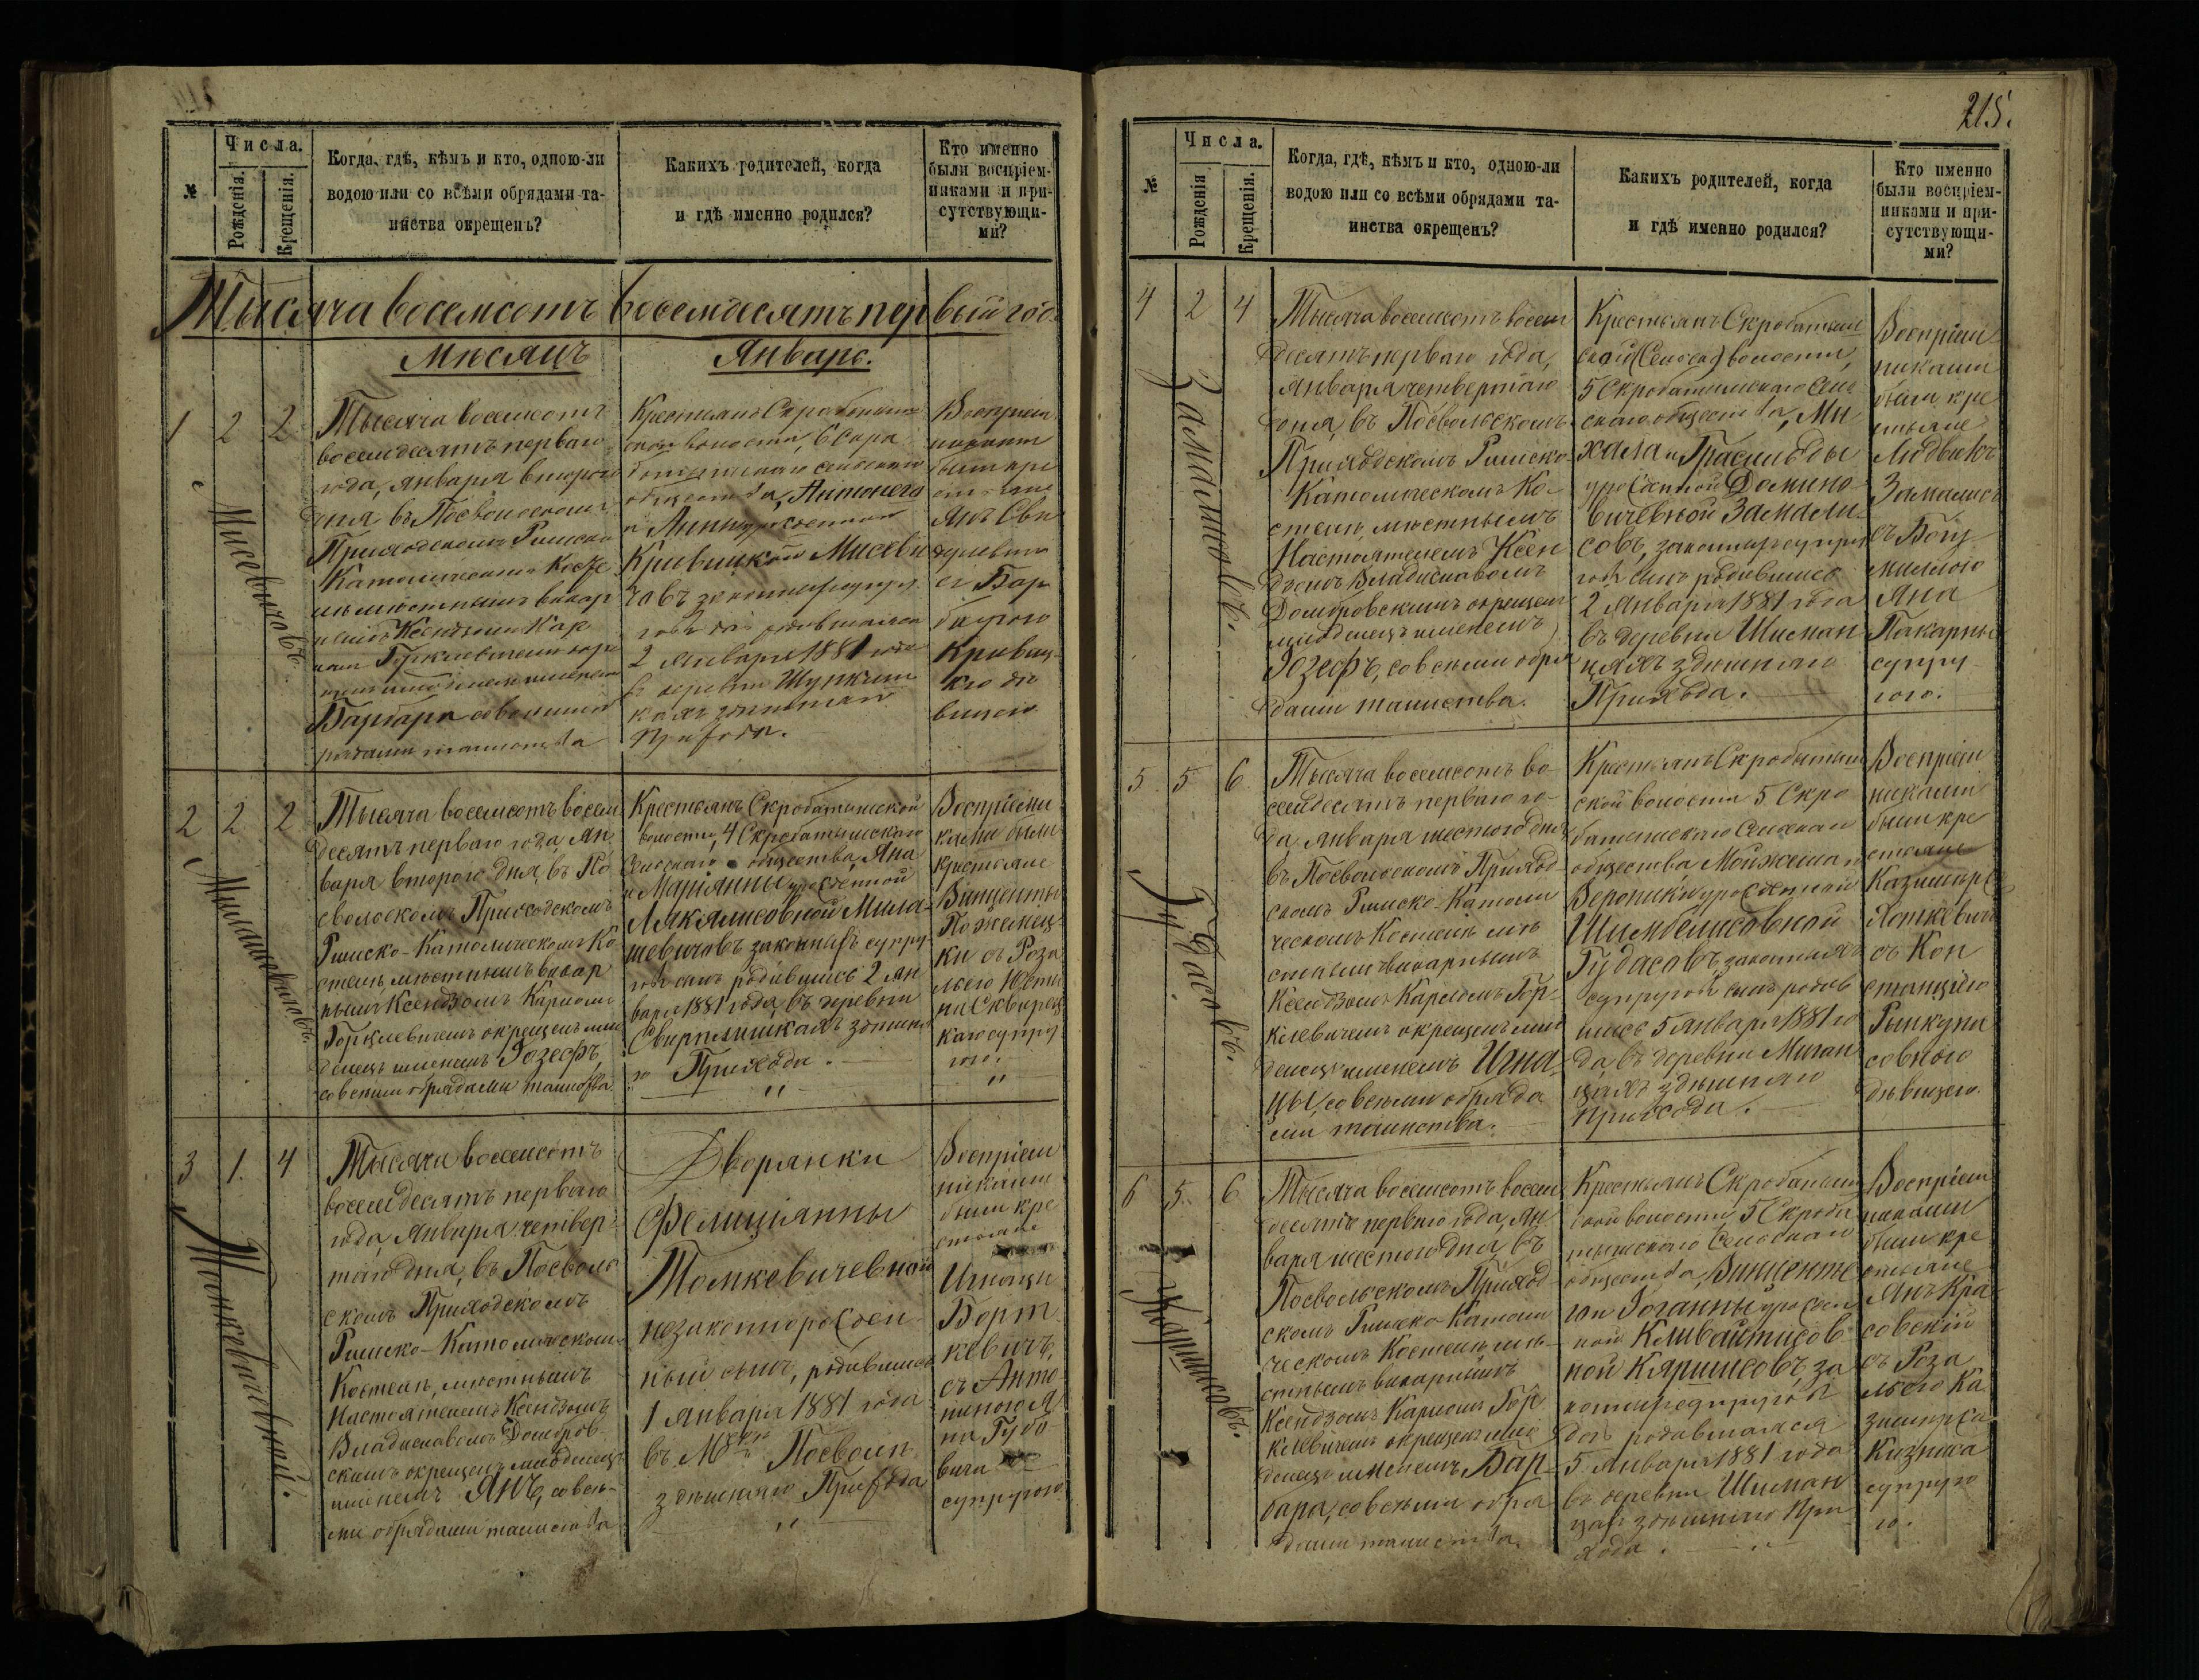 №
Числа.
Рожденія.
Крещенія.
Когда, гдѣ, кѣмъ и кто, одною-ли
водою или со всѣми обрядами та-
инства окрещенъ?
Какихъ родителей, когда
и гдѣ именно родился?
Кто именно
были воспріем-
никами и при-
сутствующи-
ми?
Тысяча восемсотъ восемдесятъ первый годъ
Мѣсяцъ Январь.
1 2 2
Мисевичовъ.
Тысяча восемсотъ
восемдесятъ перваго
года, января второго
дня въ Посвольском
Приходскомъ Римско
Католическомъ Косте
лѣ мѣстнымъ викар
нымъ Ксендзомъ Кар
ломъ Горклевичемъ
младенецъ именемъ
Барбара со всѣми об
рядами таинства
Крестьянъ Скробатыш
ской волости, 6 Скро
батышскаго сельскаго
общества, Антонего
и Анны урожденной
Кривицкой Мисеви
човъ законныхъ супру
говъ дочь родившаяся
2 января 1881 года
въ деревни
здѣшняго
Прихода.
Воспріем
никами
были кре
стьяне
Янъ
съ Бар
барою
Кривиц
кою дѣ
вицею
2 2 2
Милашевичовъ.
Тысяча восемсотъ восем
десятъ перваго года, Ян
варя второго дня, въ По
свольскомъ Приходскомъ
Римско-Католическомъ Ко
стелѣ, мѣстнымъ викар
нымъ Ксендзомъ Карломъ
Горклевичемъ окрещенъ мла
денецъ именемъ Іозефъ,
со всѣми обрядами таинства.
Крестьянъ Скробатишской
волости, 4 Скробатышскаго
Сельскаго общества, Яна
и Маріянны урожденной
Лякалисовной Мила-
шевичовъ законныхъ супру
говъ сынъ родившись 2 Ян
варя 1881 года, въ деревни
Свирплишкахъ здѣшня
го Прихода. —
"
Воспріемни
ками были
крестьяне
Винценты
съ Роза
лiею
каго супру
гою.
"
3 1. 4
Томкевичевный.
Тысяча восемсотъ
восемдесятъ перваго
года, Января четвер-
таго дня, въ Посволь
скомъ Приходскомъ
Римско-Католическомъ
Костелѣ, мѣстнымъ
Настоятелемъ Ксендзомъ
Владиславомъ Домбров-
скимъ окрещенъ младенецъ
именемъ Янъ, со всѣ-
ми обрядами таинства
Дворянки
Фелиціянны
Томкевичевной
незаконнорожден-
ный сынъ, родившись
1 Января 1881 года
въ Мѣст. Посволи
здѣшняго Прихода
"
Воспріем
никами
были кре
стьяне
Игнацы
Борт-
кевичъ,
съ Анто
ниною Я
на Гудо-
вича
супругою.
215.
№
Числа.
Рожденія
Крещенія.
Когда, гдѣ, кѣмъ и кто, одною-ли
водою или со всѣми обрядами та-
инства окрещенъ?
Какихъ родителей, когда
и гдѣ именно родился?
Кто именно
были воспріем-
никами и при-
сутствующи-
ми?
4 2 4
Замалисовъ.
Тысяча восемсотъ восем
десятъ перваго года,
Января четвертаго
дня, въ Посвольскомъ
Приходскомъ Римско
Католическомъ Ко-
стелѣ, мѣстнымъ
Настоятелемъ Ксен
дзомъ Владиславомъ
Домбровскимъ окрещенъ
младенецъ именемъ
Іозефъ, со всѣми обря
дами таинства.
Крестьянъ Скробатыш
ской (Сельской) волости,
5 Скробатишскаго Сель
скаго общества, Ми
хала и Грасильды
урожденной Домино-
вичевной Замали-
совъ, законныхъ супру
говъ сынъ родившись
2 Января 1881 года
въ деревни Шиман
цяхъ здѣшняго
Прихода. —
Воспріем
никами
были кре
стьяне
Людвикъ
Замалисъ
съ Богу
милою
Яна
супру
гою.
5 5 6
Гудасовъ.
Тысяча восемсотъ во-
семдесятъ перваго го-
да Января шестого дня
въ Посвольскомъ Приход
скомъ Римско-Католи
ческомъ Костелѣ мѣ
стнымъ викарнымъ
Ксендзомъ Карломъ Гор-
клевичемъ окрещенъ мла
денецъ именемъ Игна-
цы, со всѣми обряда
ми таинства.
Крестьянъ Скробатыш
ской волости 5 Скро
батишскаго Сельскаго
общества Мойжеша и
Вероники урожденной
Шимбелисовной
Гудасовъ, законныхъ
супруговъ сынъ родив
шись 5 Января 1881 го
да въ деревни Миган
цахъ здѣшняго
прихода. —
Воспріем
никами
были кре
стьяне
Казимиръ
съ Кон
станціею
Рынкуна
совною
дѣвицею.
6 5. 6
Кяршисовъ.
Тысяча восемсотъ восем
десятъ перваго года, Ян
варя шестого дня, въ
Посвольскомъ Приход
скомъ Римско-Католи
ческомъ Костелѣ, мѣ-
стнымъ викарнымъ
Ксендзомъ Карломъ Гор
клевичемъ окрещенъ мла
денецъ именемъ Бар-
бара, со всѣми обря
дами таинства.
Крестьянъ Скробатыш
ской волости, 5 Скроба
тышскаго Сельскаго
общества, Винценте
го и Іоганны урожден
ной Кливайтисов-
ной Кяршисовъ, за
конныхъ супруговъ
дочь родившаяся
5 Января 1881 года
въ деревни Шиман
цахъ здѣшняго При
хода. —
Воспріем
никами
были кре
стьяне
Янъ Кра
совскій
съ Роза
лiею Ка
зимира
супруго
ю.